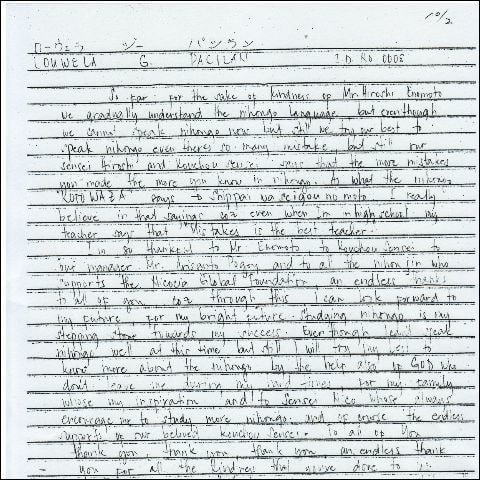 10/2
ローウェラ ジー パシラン
LOUWELA G. PACILAN I.D. No 0005
So far for the sake of kindness of Mr. Hiroshi Enomoto
we gradually understand the nihongo language. but eventhough
we cannot speak nihongo now but still we try our best to
speak nihongo even theres so many mistake but still our
sensei Hiroshi and Kouchou sensei says that the more mistakes
you made the more you know in nihongo. to what the nihongo
KOTOWAZA says → Shippai wa seigou no moto. I really
believe in that sayings coz even when I'm in highschool my
teacher says that Mistakes is the best teacher.
I'm so thankful to Mr Enomoto to Kouchou sensei to
our manager Mr. and to all the nihonjin who
supports the Global Foundation an endless thanks
to all of you, coz through this I can look forward to
my future. For my bright future. Studying nihongo is my
stepping stone towards my success. Eventhough I can't speak
nihongo well at this time but still I will try my best to
know more about the nihongo by the help also of GOD who
don't leave me during my hard times. For my family
whose my inspiration and to Sensei Nico whose always
encourage me to study more nihongo. and of course the endless
supports of our beloved Kouchou sensei. To all of you
thank you, thank you, thank you an endless thank
you for all the kindness that you've done to us.